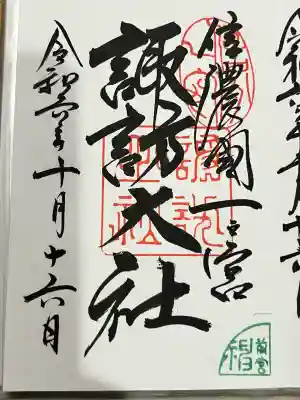 信濃國一之宮
諏訪大社
令和六年十月十六日
前宮